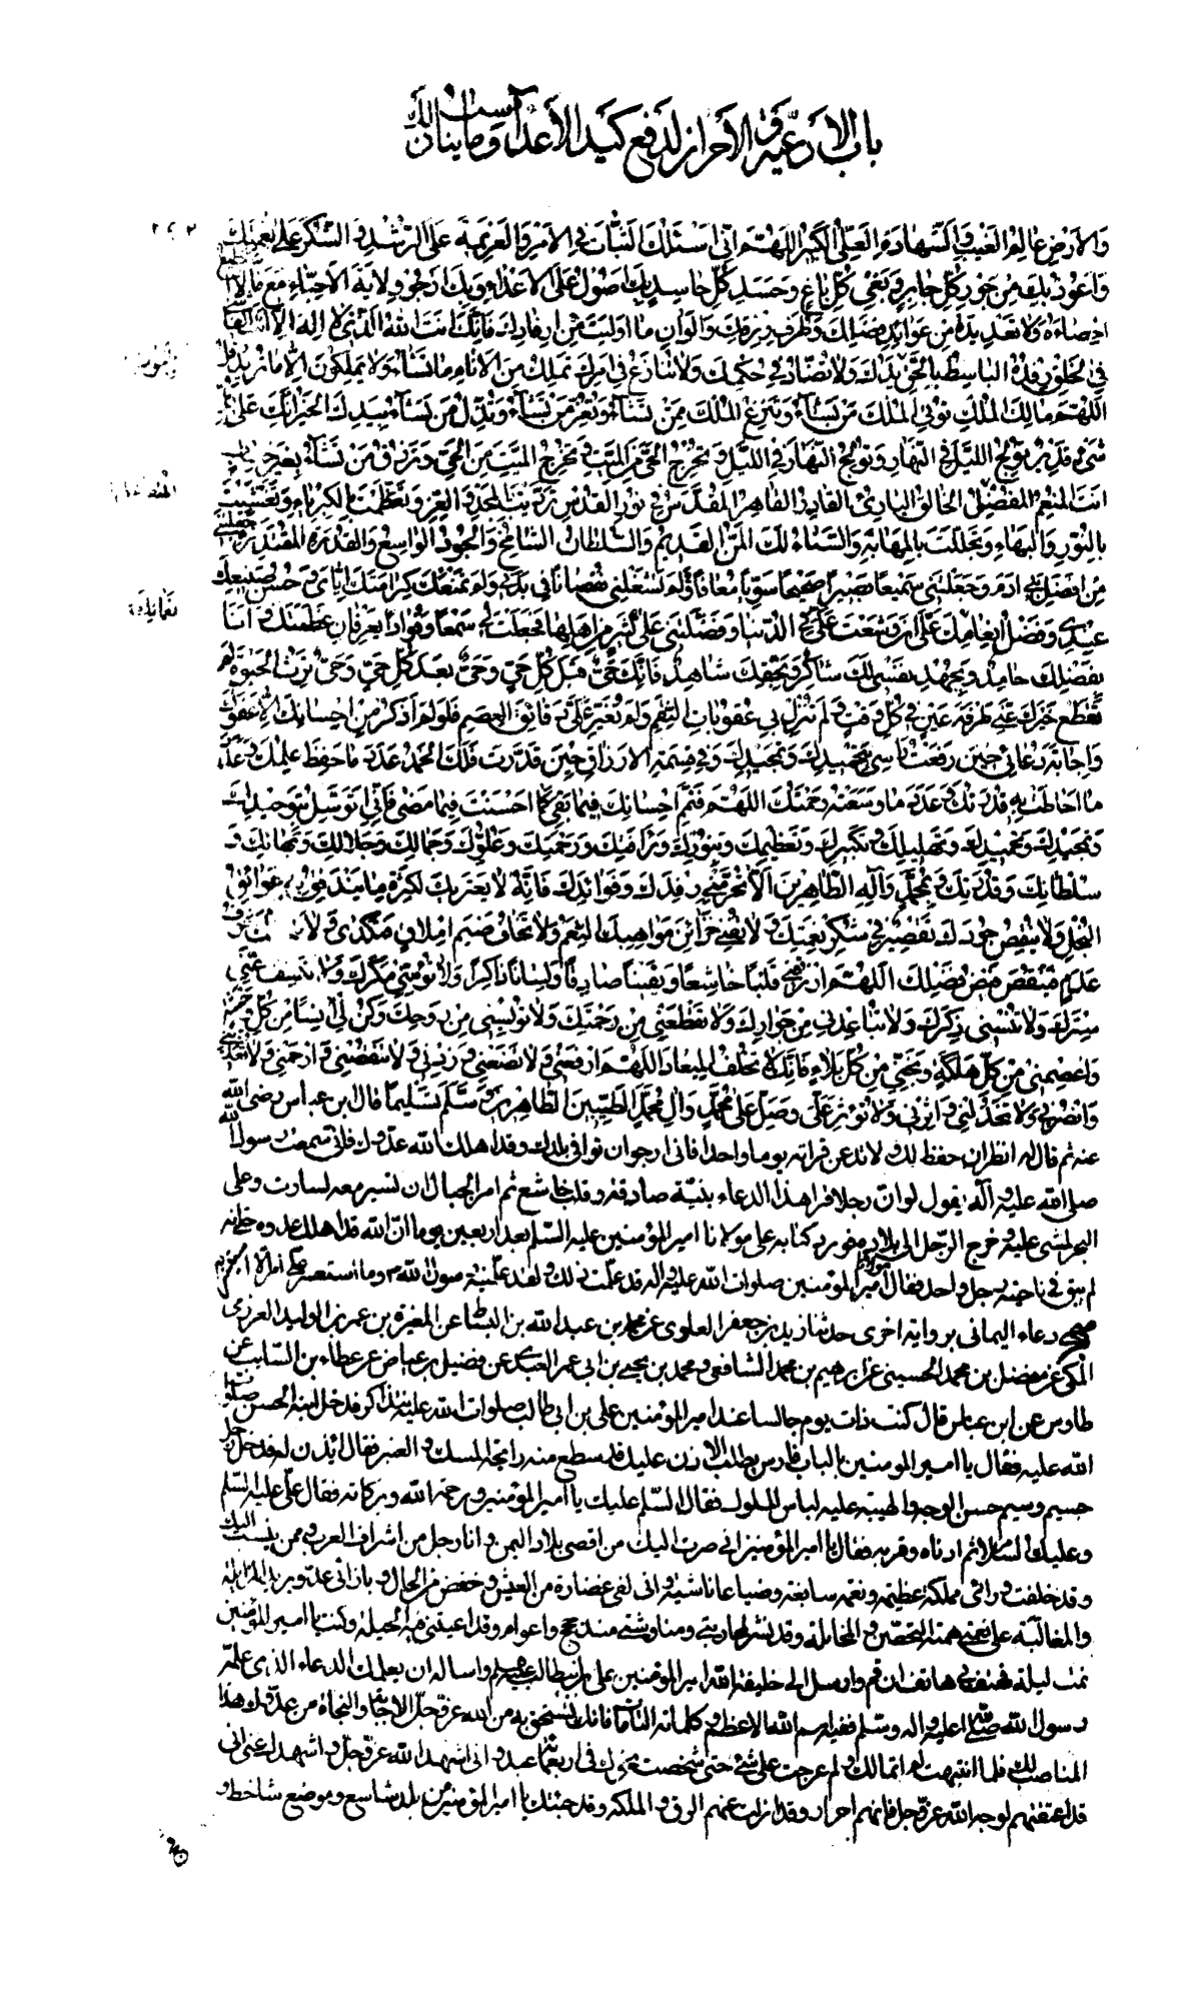 باب الادعية والأحراز لدفع كيد الأعداء وما يناسب ذلك
٢٤٢
وَالأَرْضِ عالِمِ الْغَيْبِ وَالشَّهادَةِ الْعَلِيِّ الْكَبِيرِ اللّهُمَّ اِنّي اَسْئَلُكَ الثَّباتَ فِي الاَمْرِ وَالْعَزِيمَةَ عَلَى الرُّشْدِ وَالشُّكْرَ عَلى نِعْمَتِكَ
وَاَعُوذُ بِكَ مِنْ جَوْرِ كُلِّ جائِرٍ وَبَغْيِ كُلِّ باغٍ وَحَسَدِ كُلِّ حاسِدٍ بِكَ اَصُولُ عَلَى الاَعْداءِ وَبِكَ اَرْجُو وِلايَةَ الاَحِبّاءِ مَعَ ما لا اَسْتَطيعُ
اِحْصاءَهُ وَلا تَعْدِيدَهُ مِنْ عَوائِدِ فَضْلِكَ وَطُرَفِ رِزْقِكَ وَاَلْوانِ ما اَوْلَيْتَ مِنْ اِرْفادِكَ فَاِنَّكَ اَنْتَ اللهُ الَّذي لا اِلهَ اِلاّ اَنْتَ الْفاشي
فِي الْخَلْقِ رِفْدُكَ الْباسِطُ بِالْحَقِّ يَدُكَ وَلا تُضادُّ في حُكْمِكَ وَلا تُنازَعُ في اَمْرِكَ تَمْلِكُ مِنَ الاَنامِ ما تَشاءُ وَلا يَمْلِكُونَ اِلاّ ما تُرِيدُ قُلِ
اللّهُمَّ مالِكَ الْمُلْكِ تُؤْتِي الْمُلْكَ مَنْ تَشاءُ وَتَنْزِعُ الْمُلْكَ مِمَّنْ تَشاءُ وَتُعِزُّ مَنْ تَشاءُ وَتُذِلُّ مَنْ تَشاءُ بِيَدِكَ الْخَيْرُ اِنَّكَ عَلى كُلِّ
شَيْءٍ قَدِيرٌ تُولِجُ اللَّيْلَ فِي النَّهارِ وَتُولِجُ النَّهارَ فِي اللَّيْلِ وَتُخْرِجُ الْحَيَّ مِنَ الْمَيِّتِ وَتُخْرِجُ الْمَيِّتَ مِنَ الْحَيِّ وَتَرْزُقُ مَنْ تَشاءُ بِغَيْرِ حِسابٍ
اَنْتَ الْمُنْعِمُ الْمُفْضِلُ الْخالِقُ الْبارِئُ الْقادِرُ الْقاهِرُ الْمُقَدَّسُ في نُورِ الْقُدْسِ تَرَدَّيْتَ بِالْمَجْدِ وَالْعِزِّ وَتَعَظَّمْتَ بِالْكِبْرِياءِ وَتَغَشَّيْتَ
بِالنُّورِ وَالْبَهاءِ وَتَجَلَّلْتَ بِالْمَهابَةِ وَالسَّناءِ لَكَ الْمَنُّ الْقَدِيمُ وَالسُّلْطانُ الشّامِخُ وَالْجُودُ الْواسِعُ وَالْقُدْرَةُ الْمُقْتَدِرَةُ جَعَلْتَني
مِنْ اَفْضَلِ بَني ادَمَ وَجَعَلْتَني سَمِيعاً بَصِيراً صَحِيحاً سَوِيّاً مُعافاً وَلَمْ تَشْغَلْني نُقْصاناً في بَدَني وَلَمْ تَمْنَعْكَ كَرامَتُكَ اِيّايَ وَحُسْنُ صَنِيعِكَ
عِنْدي وَفَضْلُ اِنْعامِكَ عَلَيَّ اَنْ وَسَّعْتَ عَلَيَّ فِي الدُّنْيا وَفَضَّلْتَني عَلى كَثِيرٍ مِنْ اَهْلِها فَجَعَلْتَ لي سَمْعاً وَفُؤاداً يَعْرِفانِ عَظَمَتَكَ اَنَا
بِفَضْلِكَ حامِدٌ وَبِجُهْدِ نَفْسي لَكَ شاكِرٌ وَبِحَقِّكَ شاهِدٌ فَاِنَّكَ حَيٌّ قَبْلَ كُلِّ حَيٍّ وَحَيٌّ بَعْدَ كُلِّ حَيٍّ وَحَيٌّ تَرِثُ الْحَيوةَ لَمْ
تَقْطَعْ خَيْرَكَ عَنّي طَرْفَةَ عَيْنٍ في كُلِّ وَقْتٍ وَلَمْ تُنْزِلْ بي عُقُوباتِ النِّقَمِ وَلَمْ تُغَيِّرْ عَلَيَّ وَثائِقَ الْعِصَمِ فَلَوْ لَمْ اَذْكُرْ مِنْ اِحْسانِكَ اِلاّ عَفْوَكَ
وَاِجابَةَ دُعائي حِينَ رَفَعْتُ رَأْسي بِتَحْمِيدِكَ وَتَمْجِيدِكَ وَفي قِسْمَةِ الاَرْزاقِ حِينَ قَدَّرْتَ فَلَكَ الْحَمْدُ عَدَدَ ما حَفِظَ عِلْمُكَ وَعَدَدَ
ما اَحاطَتْ بِهِ قُدْرَتُكَ وَعَدَدَ ما وَسِعَتْهُ رَحْمَتُكَ اللّهُمَّ فَتَمِّمْ اِحْسانَكَ فيما بَقِيَ كَما اَحْسَنْتَ فيما مَضى فَاِنّي اَتَوَسَّلُ بِتَوْحِيدِكَ
وَتَمْجِيدِكَ وَتَحْمِيدِكَ وَتَهْلِيلِكَ وَتَكْبِيرِكَ وَتَعْظِيمِكَ وَبِنُورِكَ وَرَأْفَتِكَ وَرَحْمَتِكَ وَعُلُوِّكَ وَجَمالِكَ وَجَلالِكَ وَبَهائِكَ وَ
سُلْطانِكَ وَقُدْرَتِكَ وَبِمُحَمَّدٍ وَآلِهِ الطّاهِرِينَ اَلاّ تَحْرِمَني رِفْدَكَ وَفَوائِدَكَ فَاِنَّهُ لا يَعْتَرِيكَ لِكَثْرَةِ ما يَنْدَفِقُ بِهِ عَوائِقُ
الْبُخْلِ وَلا يَنْقُصُ جُودَكَ تَقْصِيرٌ في شُكْرِ نِعْمَتِكَ وَلا تُفْني خَزائِنَ مَواهِبِكَ النِّعَمُ وَلا تَخافُ ضَيْمَ اِمْلاقٍ فَتُكْدِيَ وَلا
عُدْمٍ فَيَنْقُصَ فَيْضُ فَضْلِكَ اللّهُمَّ ارْزُقْني قَلْباً خاشِعاً وَيَقِيناً صادِقاً وَلِساناً ذاكِراً وَلا تُؤْمِنّي مَكْرَكَ وَلا تَكْشِفْ عَنّي
سِتْرَكَ وَلا تُنْسِني ذِكْرَكَ وَلا تُباعِدْني مِنْ جِوارِكَ وَلا تَقْطَعْني مِنْ رَحْمَتِكَ وَلا تُؤْيِسْني مِنْ رَوْحِكَ وَكُنْ لي اَنِيساً مِنْ كُلِّ وَحْشَةٍ
وَاعْصِمْني مِنْ كُلِّ هَلَكَةٍ وَنَجِّني مِنْ كُلِّ بَلاءٍ فَاِنَّكَ لا تُخْلِفُ الْمِيعادَ اللّهُمَّ ارْفَعْني وَلا تَضَعْني وَزِدْني وَلا تَنْقُصْني وَارْحَمْني وَلا تُعَذِّبْني
وَانْصُرْني وَلا تَخْذُلْني وَاثِرْني وَلا تُؤْثِرْ عَلَيَّ وَصَلِّ عَلى مُحَمَّدٍ وَالِ مُحَمَّدٍ الطَّيِّبِينَ الطّاهِرِينَ وَسَلَّمَ تَسْلِيماً قال ابن عباس رضى الله
عنه ثم قال له انظر ان حفظ لك ولا تدعن قراته يوما واحدا فانى ارجو ان توافى بلادك وقد اهلك الله عدوك فانى سمعت رسول الله
صلى الله عليه وآله يقول لو ان رجلا قرا هذا الدعاء بنية صادقة وقلب خاشع ثم امر الجبال ان تسير معه لسارت وعلى
البحر لمشى عليه وخرج الرجل الى بلاده فورد كتابه على مولانا امير المؤمنين عليه السلم بعد اربعين يوما ان الله قد اهلك عدوه حتى انه
لم يبق فى ناحيته رجل واحد فقال امير المؤمنين صلوات الله عليه واله قد علمت ذلك ولقد علمنيه رسول الله ص وما استعسر على امر الا استيسر به
دعاء اليمانى برواية اخرى حدثنا زيد بن جعفر العلوى عن محمد بن عبد الله بن البساط عن المغيرة بن عمر بن الوليد العرزمى
المكى عن مفضل بن محمد الحسينى عن ابرهيم بن محمد الشافعى ومحمد بن يحيى بن ابى عمر العبدى عن فضيل بن عياض عن عطاء بن السايب عن
طاوس عن ابن عباس قال كنت ذات يوم جالسا عند امير المؤمنين على بن ابى طالب صلوات الله عليه نتذاكر فدخل ابنه الحسن صلوات
الله عليه فقال يا امير المومنين بالباب فارس يطلب الاذن عليك قد سطع منه رائحة المسك والعنبر فقال ائذن له فدخل رجل
جسيم وسيم حسن الوجه والهيئة عليه لباس الملوك فقال السلم عليك يا امير المؤمنين ورحمة الله وبركاته فقال على عليه السلم
وعليك السلام ثم ادناه وقربه فقال يا امير المؤمنين انى صرت اليك من اقصى بلاد اليمن وانا رجل من اشراف العرب وممن ينتسب اليك
وقد خلفت ورائى مملكة عظيمة ونعمة سابغة وضياعا ناشية وانى لفى غضارة من العيش وخفض من الحال وبازائى عدو يريد المزايلة
والمغالبة على نعمتى همته التحصن والمخاتلة وقد نشر لمحاربتى ومناوشتى منذ حجج واعوام وقد اعيتنى فيه الحيلة وكنت يا امير المؤمنين
نمت ليلة فهتف بى هاتف ان قم وارسل الى خليفة الله امير المؤمنين على بن ابيطالب عليه السلم واساله ان يعلمك الدعاء الذى علمه
رسول الله صلى الله عليه واله وسلم ففيه اسم الله الاعظم وكلماته التامات فانك تستحق به من الله عز وجل الاجابة والنجاة من عدوك هذا
المناصب لك فلما انتبهت لم اتمالك ولم عرجت على شئ حتى شخصت نحوك فى اربعمائة عبد وانى اشهد الله عز وجل واشهدك عنى انى
قد اعتقتهم لوجه الله عز وجل فانهم احرار وقد ازلت عنهم الرق والملكة وقد جئتك يا امير المؤمنين من بلد شاسع وموضع شاحط و